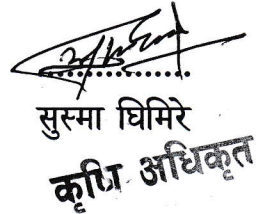 सुस्मा घिमिरे
कृषि अधिकृत